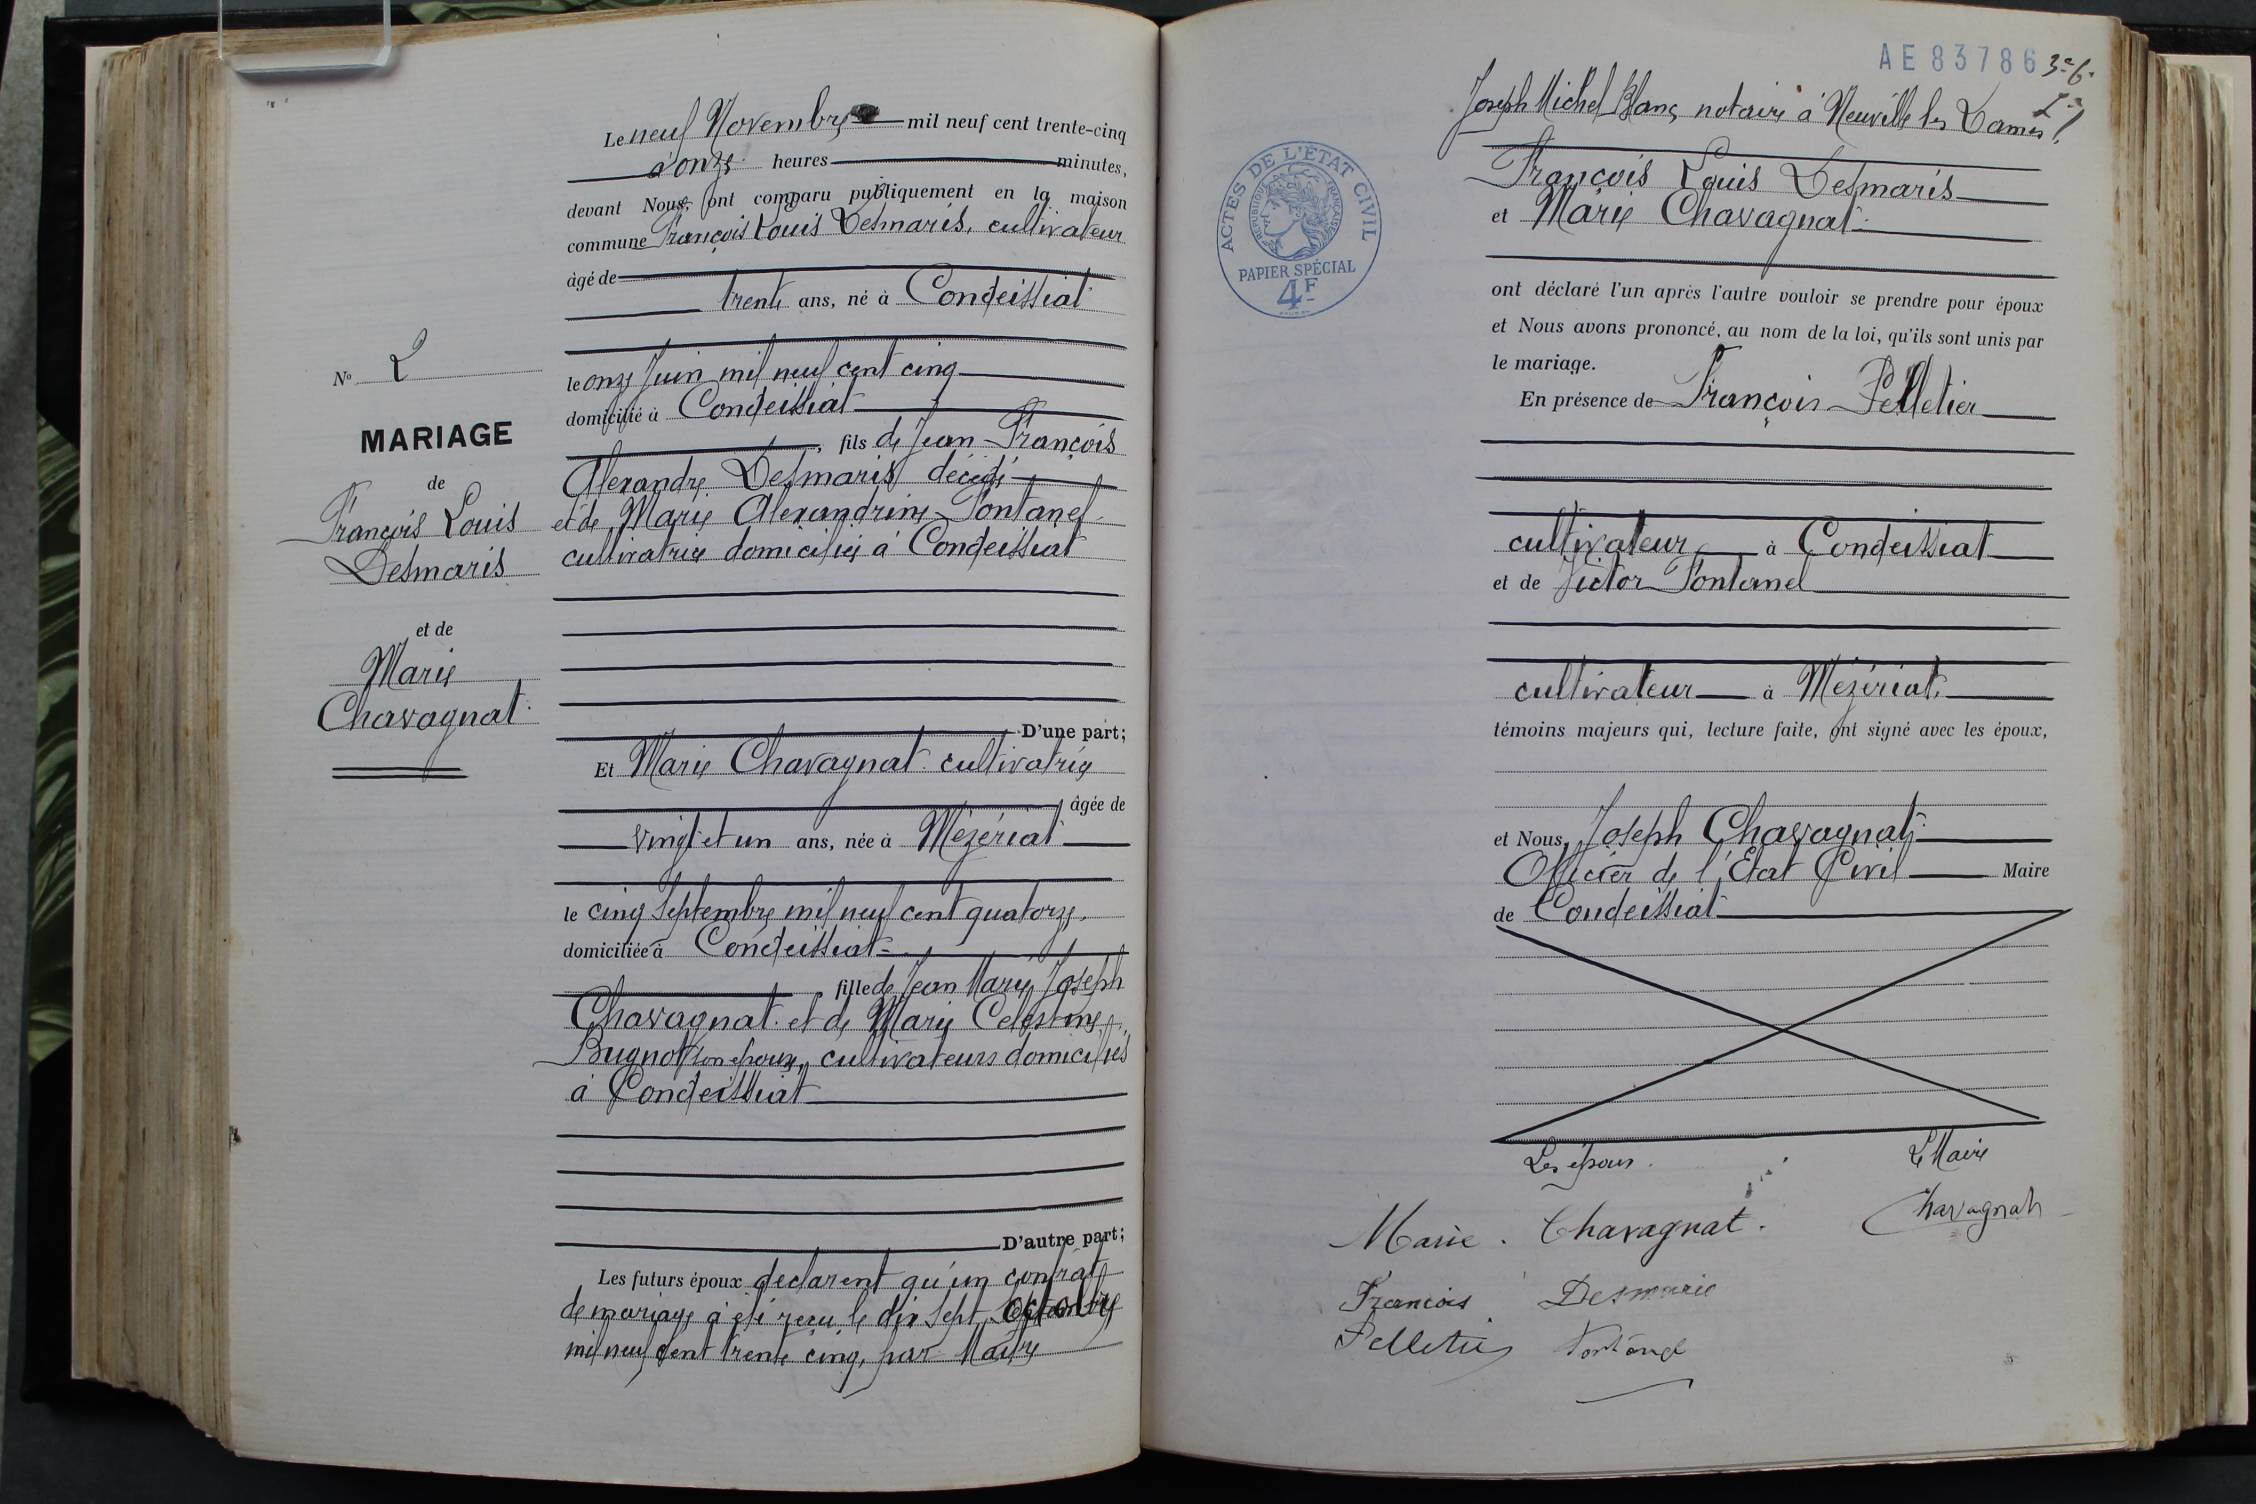 Le neuf Novembre mil neuf cent trente-cinq
à onze heures minutes,
devant Nous, ont comparu publiquement en la maison
commune François Louis Desmaris, cultivateur
âgé de
trente ans, né à Condeissiat
le onze Juin mil neuf cent cinq
domicilié à Condeissiat
, fils de Jean François
Alexandre Desmaris décédé
et de Marie Alexandrine Fontanel
cultivatrice domiciliée à Condeissiat
D'une part;
Et Marie Chavagnat cultivatrice
âgée de
vingt et un ans, née à Mézériat
le cinq Septembre mil neuf cent quatorze,
domiciliée à Condeissiat
fille de Jean Marie Joseph
Chavagnat et de Marie Celestine
Bugnot son épouse, cultivateurs domiciliés
à Condeissiat
D'autre part;
Les futurs époux déclarent qu'un contrat
de mariage a été reçu le dix sept octobre
mil neuf cent trente cinq, par Maître
N° 2
MARIAGE
de
François Louis
Desmaris
et de
Marie
Chavagnat
AE 83786
Joseph Michel Blanc, notaire à Neuville les Dames
ACTES DE L'ÉTAT CIVIL
RÉPUBLIQUE FRANÇAISE
PAPIER SPÉCIAL
4F
François Louis Desmaris
et Marie Chavagnat
ont déclaré l'un après l'autre vouloir se prendre pour époux
et Nous avons prononcé, au nom de la loi, qu'ils sont unis par
le mariage.
En présence de François Pelletier
cultivateur à Condeissiat
et de Victor Fontanel
cultivateur à Mézériat,
témoins majeurs qui, lecture faite, ont signé avec les époux,
et Nous, Joseph Chavagnat,
Officier de l'Etat Civil Maire
de Condeissiat
Les époux. Le Maire
Marie. Chavagnat. Chavagnat
François Desmaris
Pelletier Fontanel